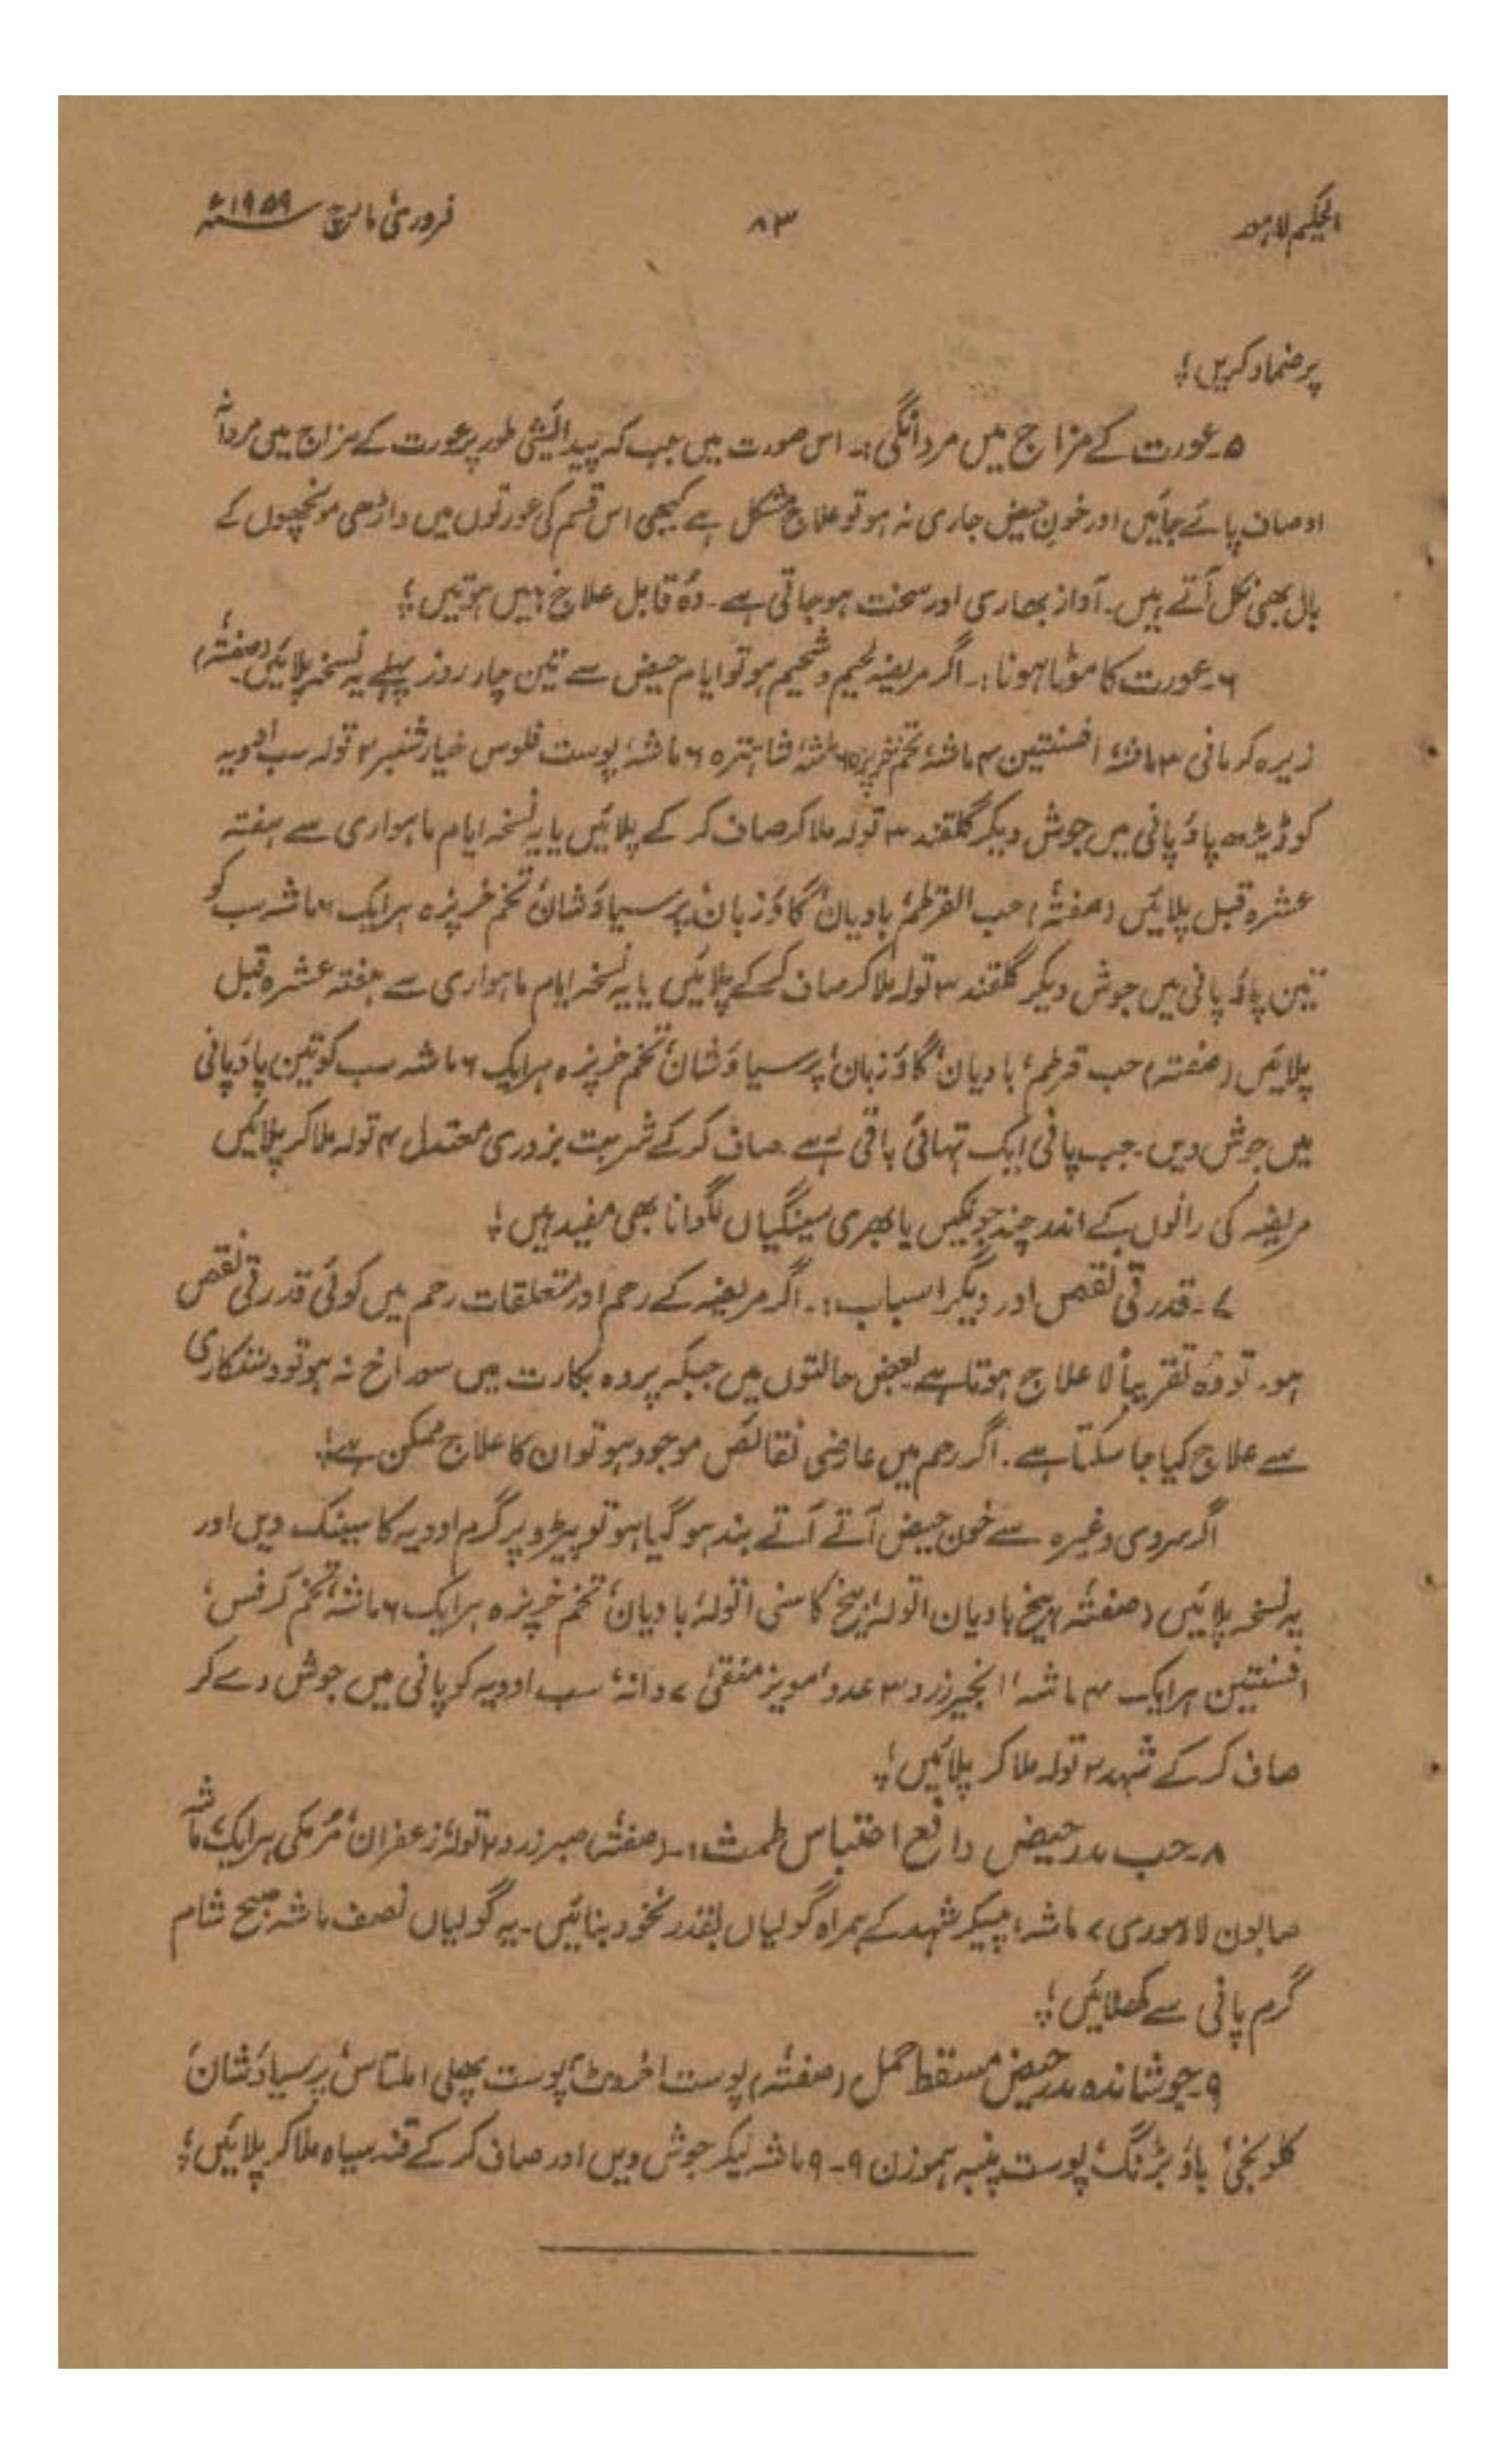 الحکیم لاہور ۸۳ فروری مارچ ۱۹۵۹ء
پر ضماد کریں؛
۵۔ عورت کے مزاج میں مردانگی:۔ اس صورت میں جب کہ پیدائشی طور پر عورت کے مزاج میں مردانہ
اوصاف پائے جائیں اور خون حیض جاری نہ ہو تو علاج مشکل ہے کبھی اس قسم کی عورتوں میں داڑھی مونچھوں کے
بال بھی نکل آتے ہیں۔ آواز بھاری اور سخت ہو جاتی ہے۔ وہ قابل علاج نہیں ہوتیں؛
۶۔ عورت کا موٹا ہونا:۔ اگر مریضہ لحیم و شحیم ہو تو ایام حیض سے تین چار روز پہلے یہ نسخہ پلائیں۔ (صفتہ)
زیرہ کرمانی ۳ ماشہ، افسنتین ۴ ماشہ، تخم خرپزہ ۶ ماشہ، شاہترہ ۶ ماشہ، پوست فلوس خیار شنبر ۲ تولہ سب ادویہ
کو ڈیڑھ پاؤ پانی میں جوش دیکر گلقند ۳ تولہ ملا کر صاف کر کے پلائیں یا یہ نسخہ ایام ماہواری سے ہفتہ
عشرہ قبل پلائیں (صفتہ) حب القرطم، بادیان، گاؤزبان، پرسیاؤشان، تخم خرپزہ ہر ایک ۶ ماشہ سب کو
تین پاؤ پانی میں جوش دیکر گلقند ۳ تولہ ملا کر صاف کر کے پلائیں یا یہ نسخہ ایام ماہواری سے ہفتہ عشرہ قبل
پلائیں (صفتہ) حب قرطم، بادیان، گاؤزبان، پرسیاؤشان، تخم خرپزہ ہر ایک ۶ ماشہ سب کو تین پاؤ پانی
میں جوش دیں۔ جب پانی ایک تہائی باقی رہے صاف کر کے شربت بزوری معتدل ۴ تولہ ملا کر پلائیں
مریضہ کی رانوں کے اندر چند جونکیں یا بھری سینگیاں لگوانا بھی مفید ہیں؛
۷۔ قدرتی نقص اور دیگر اسباب:۔ اگر مریضہ کے رحم اور متعلقات رحم میں کوئی قدرتی نقص
ہو۔ تو وہ تقریباً لا علاج ہوتا ہے بعض حالتوں میں جبکہ پردہ بکارت میں سوراخ نہ ہو تو دستکاری
سے علاج کیا جا سکتا ہے۔ اگر رحم میں عارضی نقائص موجود ہو تو ان کا علاج ممکن ہے؛
اگر سردی وغیرہ سے خون حیض آتے آتے بند ہو گیا ہو تو پیڑو پر گرم ادویہ کا سینک دیں اور
یہ نسخہ پلائیں (صفتہ) بیخ بادیان ۱ تولہ، بیخ کاسنی ۱ تولہ، بادیان، تخم خرپزہ ہر ایک ۶ ماشہ، تخم کرفس،
افسنتین ہر ایک ۴ ماشہ، انجیر زرد ۳ عدد، مویز منقیٰ ۷ دانہ، سب ادویہ کو پانی میں جوش دے کر
صاف کر کے شہد ۲ تولہ ملا کر پلائیں؛
۸۔ حب مدر حیض دافع احتباس طمث:۔ (صفتہ) صبر زرد ۲ تولہ، زعفران، مُرمکی ہر ایک ماشہ
صابون لاہوری ۷ ماشہ، پیسکر شہد کے ہمراہ گولیاں بقدر نخود بنائیں۔ یہ گولیاں نصف ماشہ صبح شام
گرم پانی سے کھلائیں؛
۹۔ جوشاندہ مدر حیض مسقط حمل (صفتہ) پوست اخروٹ، پوست پھلی املتاس، پرسیاؤشان،
کلونجی، باؤبڑنگ، پوست پنبہ ہموزن ۹-۹ ماشہ لیکر جوش دیں اور صاف کر کے قند سیاہ ملا کر پلائیں؛